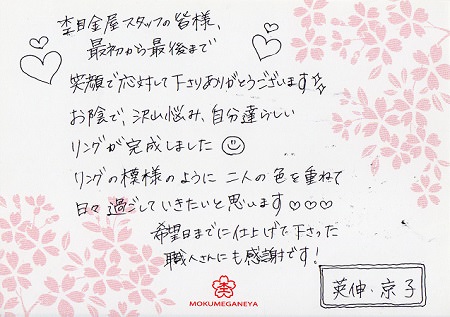 杢目金屋スタッフの皆様、
最初から最後まで
笑顔で応対して下さりありがとうございます☆
お陰で、沢山悩み、自分達らしい
リングが完成しました☺
リングの模様のように二人の色を重ねて
日々過ごしていきたいと思います♡♡♡
希望日までに仕上げて下さった
職人さんにも感謝です!
英伸・京子
杢
MOKUMEGANEYA